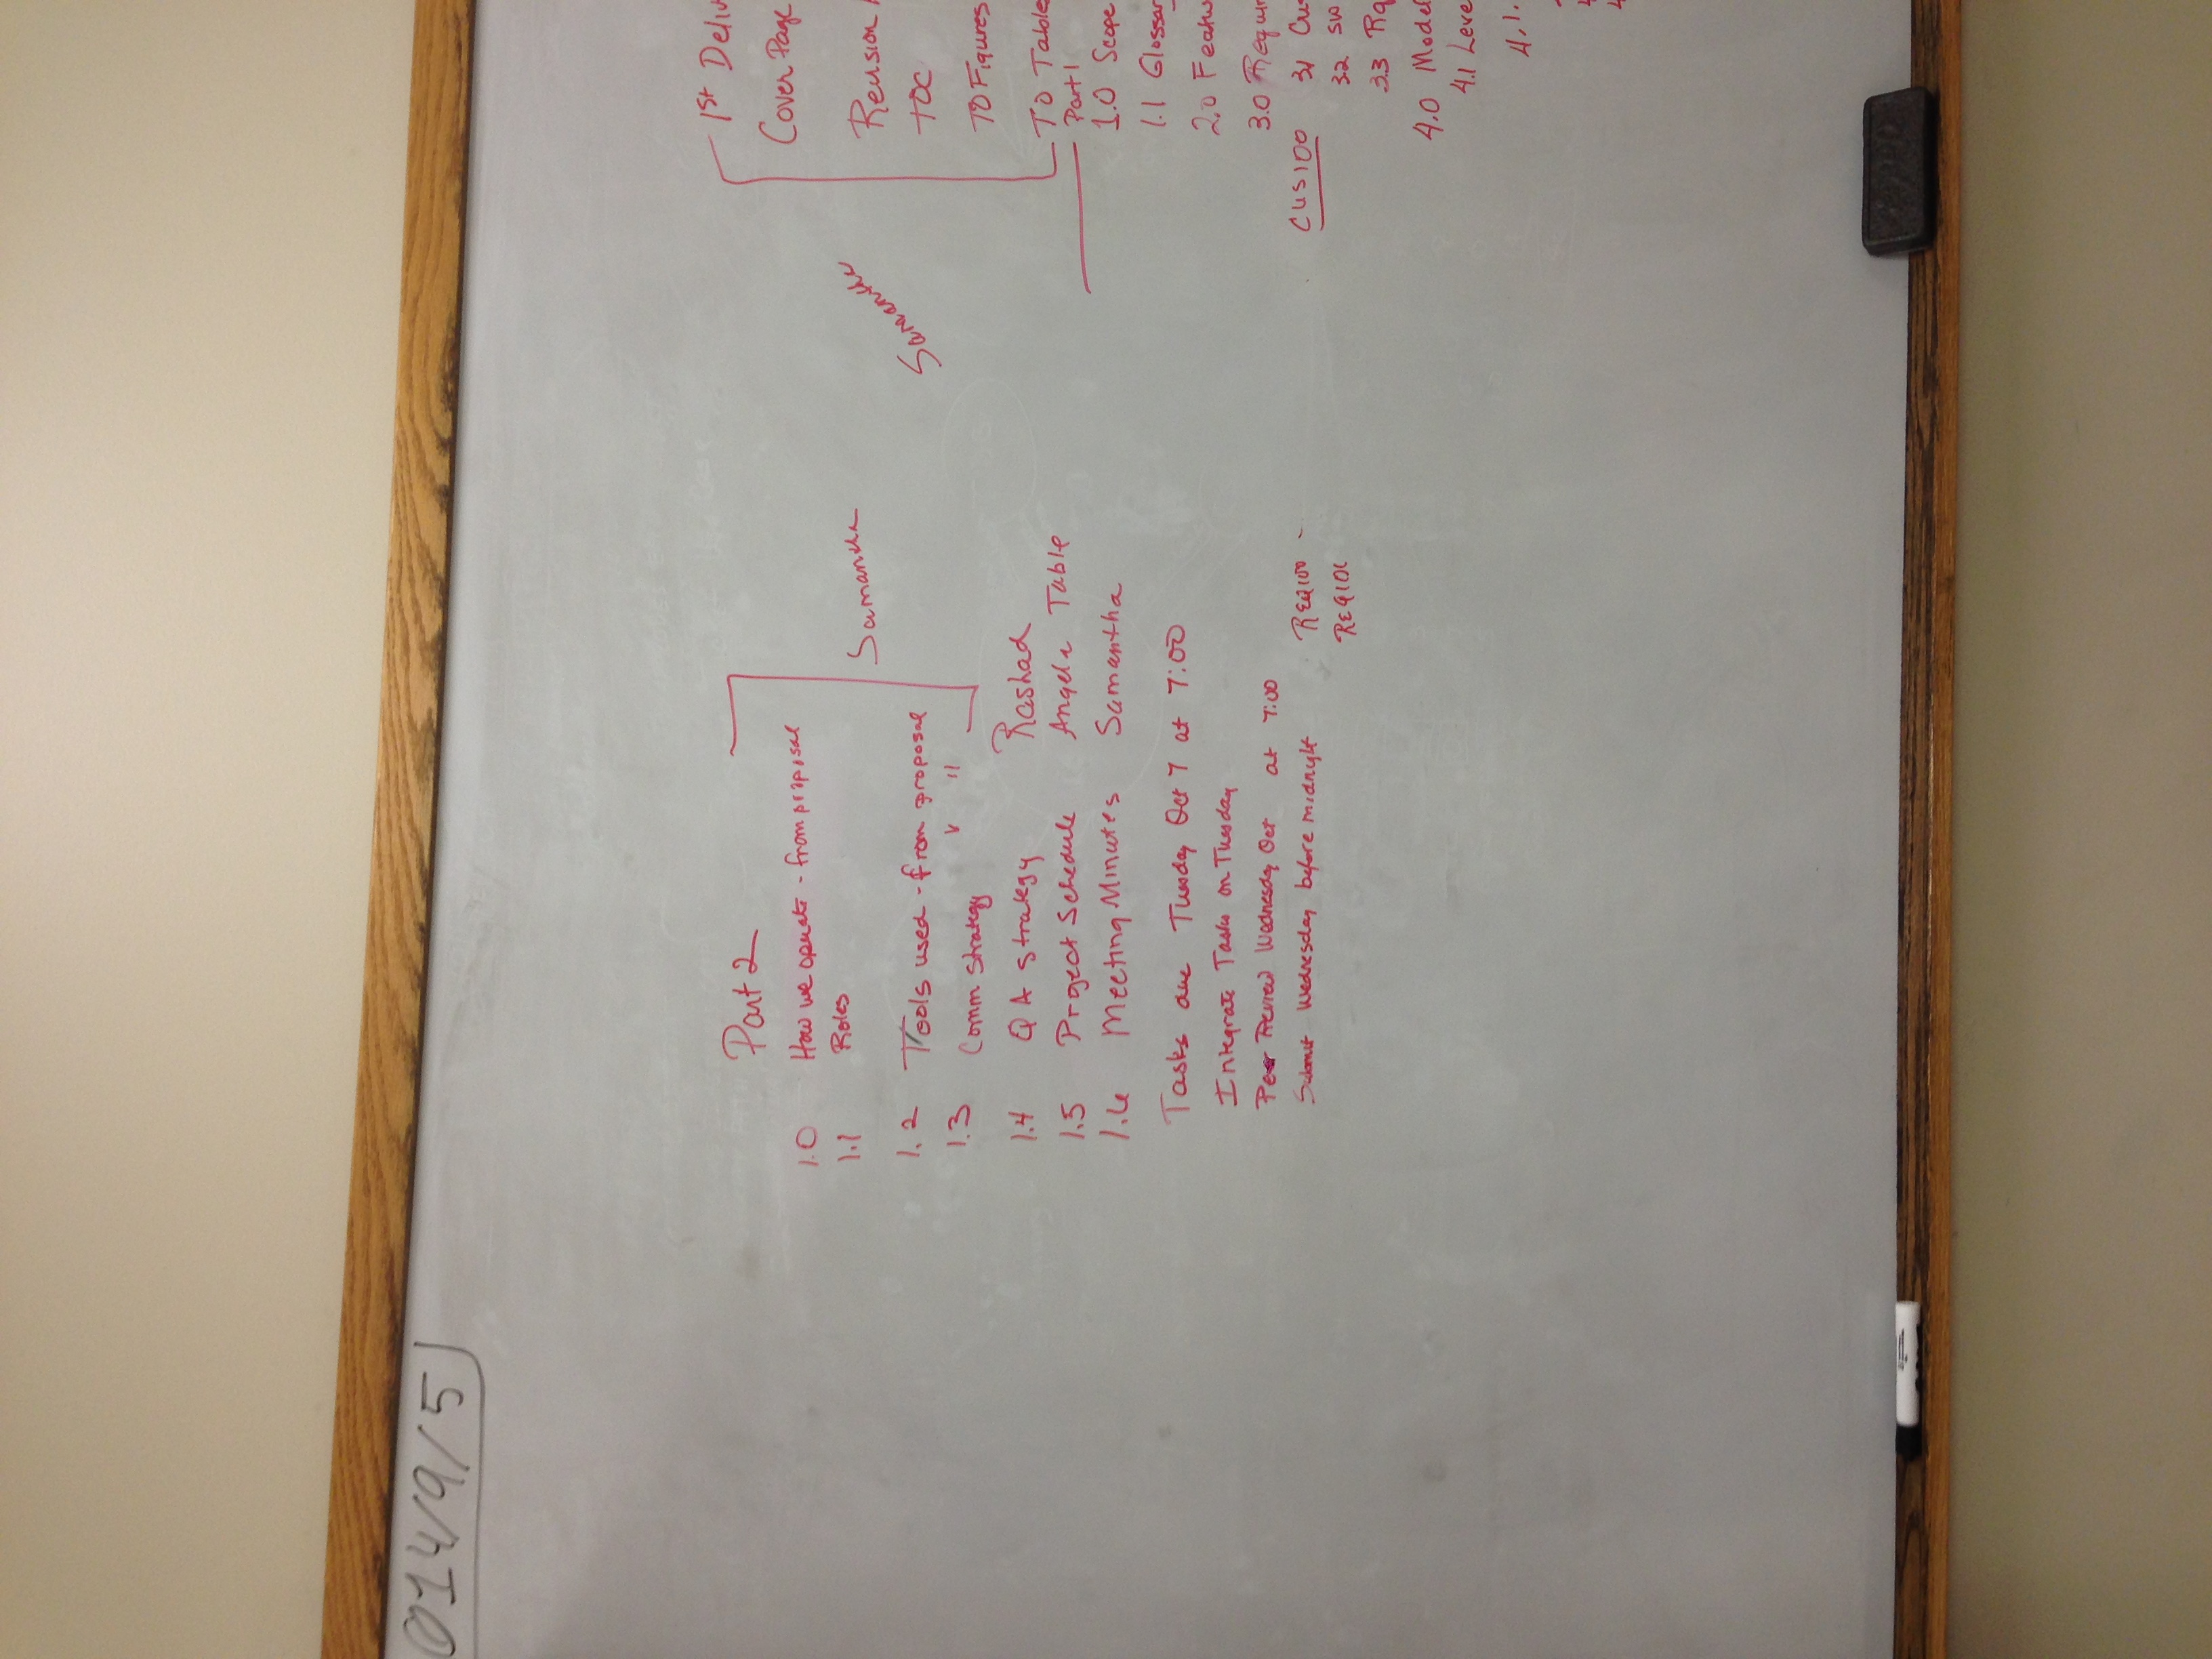 014/9/5
Part 2
1.0 How we operate - from proposal
1.1 Roles
Samantha
1.2 Tools used - from proposal
1.3 Comm strategy " "
1.4 QA strategy Rashad
1.5 Project Schedule Angela Table
1.6 Meeting Minutes Samantha
Tasks due Tuesday Oct 7 at 7:00
Integrate Tasks on Tuesday
Peer Review Wednesday Oct at 7:00
Submit Wednesday before midnight
REQ100 -
REQ101
Samantha
1st Deliv
Cover Page
Revision
TOC
TO Figures
TO Table
Part 1
1.0 Scope
1.1 Glossar
2.0 Featu
3.0 Requi
CUS100 3.1 Cu
3.2 SW
3.3 Rq
4.0 Model
4.1 Leve
4.1.